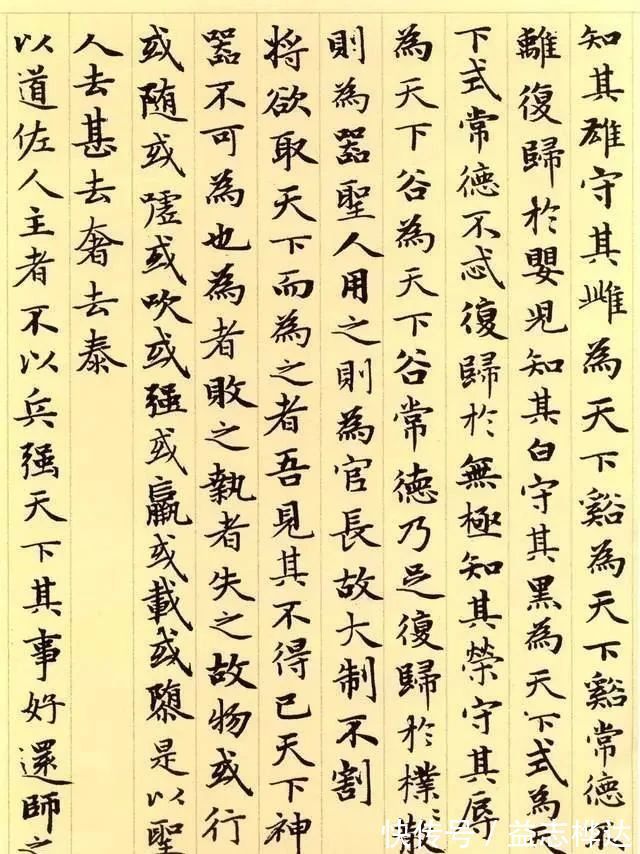 知其雄守其雌為天下谿為天下谿常德不
離復歸於嬰兒知其白守其黑為天下式為天
下式常德不忒復歸於無極知其榮守其辱
為天下谷為天下谷常德乃足復歸於樸樸散
則為噐聖人用之則為官長故大制不割
將欲取天下而為之者吾見其不得已天下神
噐不可為也為者敗之執者失之故物或行
或随或噓或吹或强或羸或載或隳是以聖
人去甚去奢去泰
以道佐人主者不以兵强天下其事好還師之
快传号 / 益志桦达